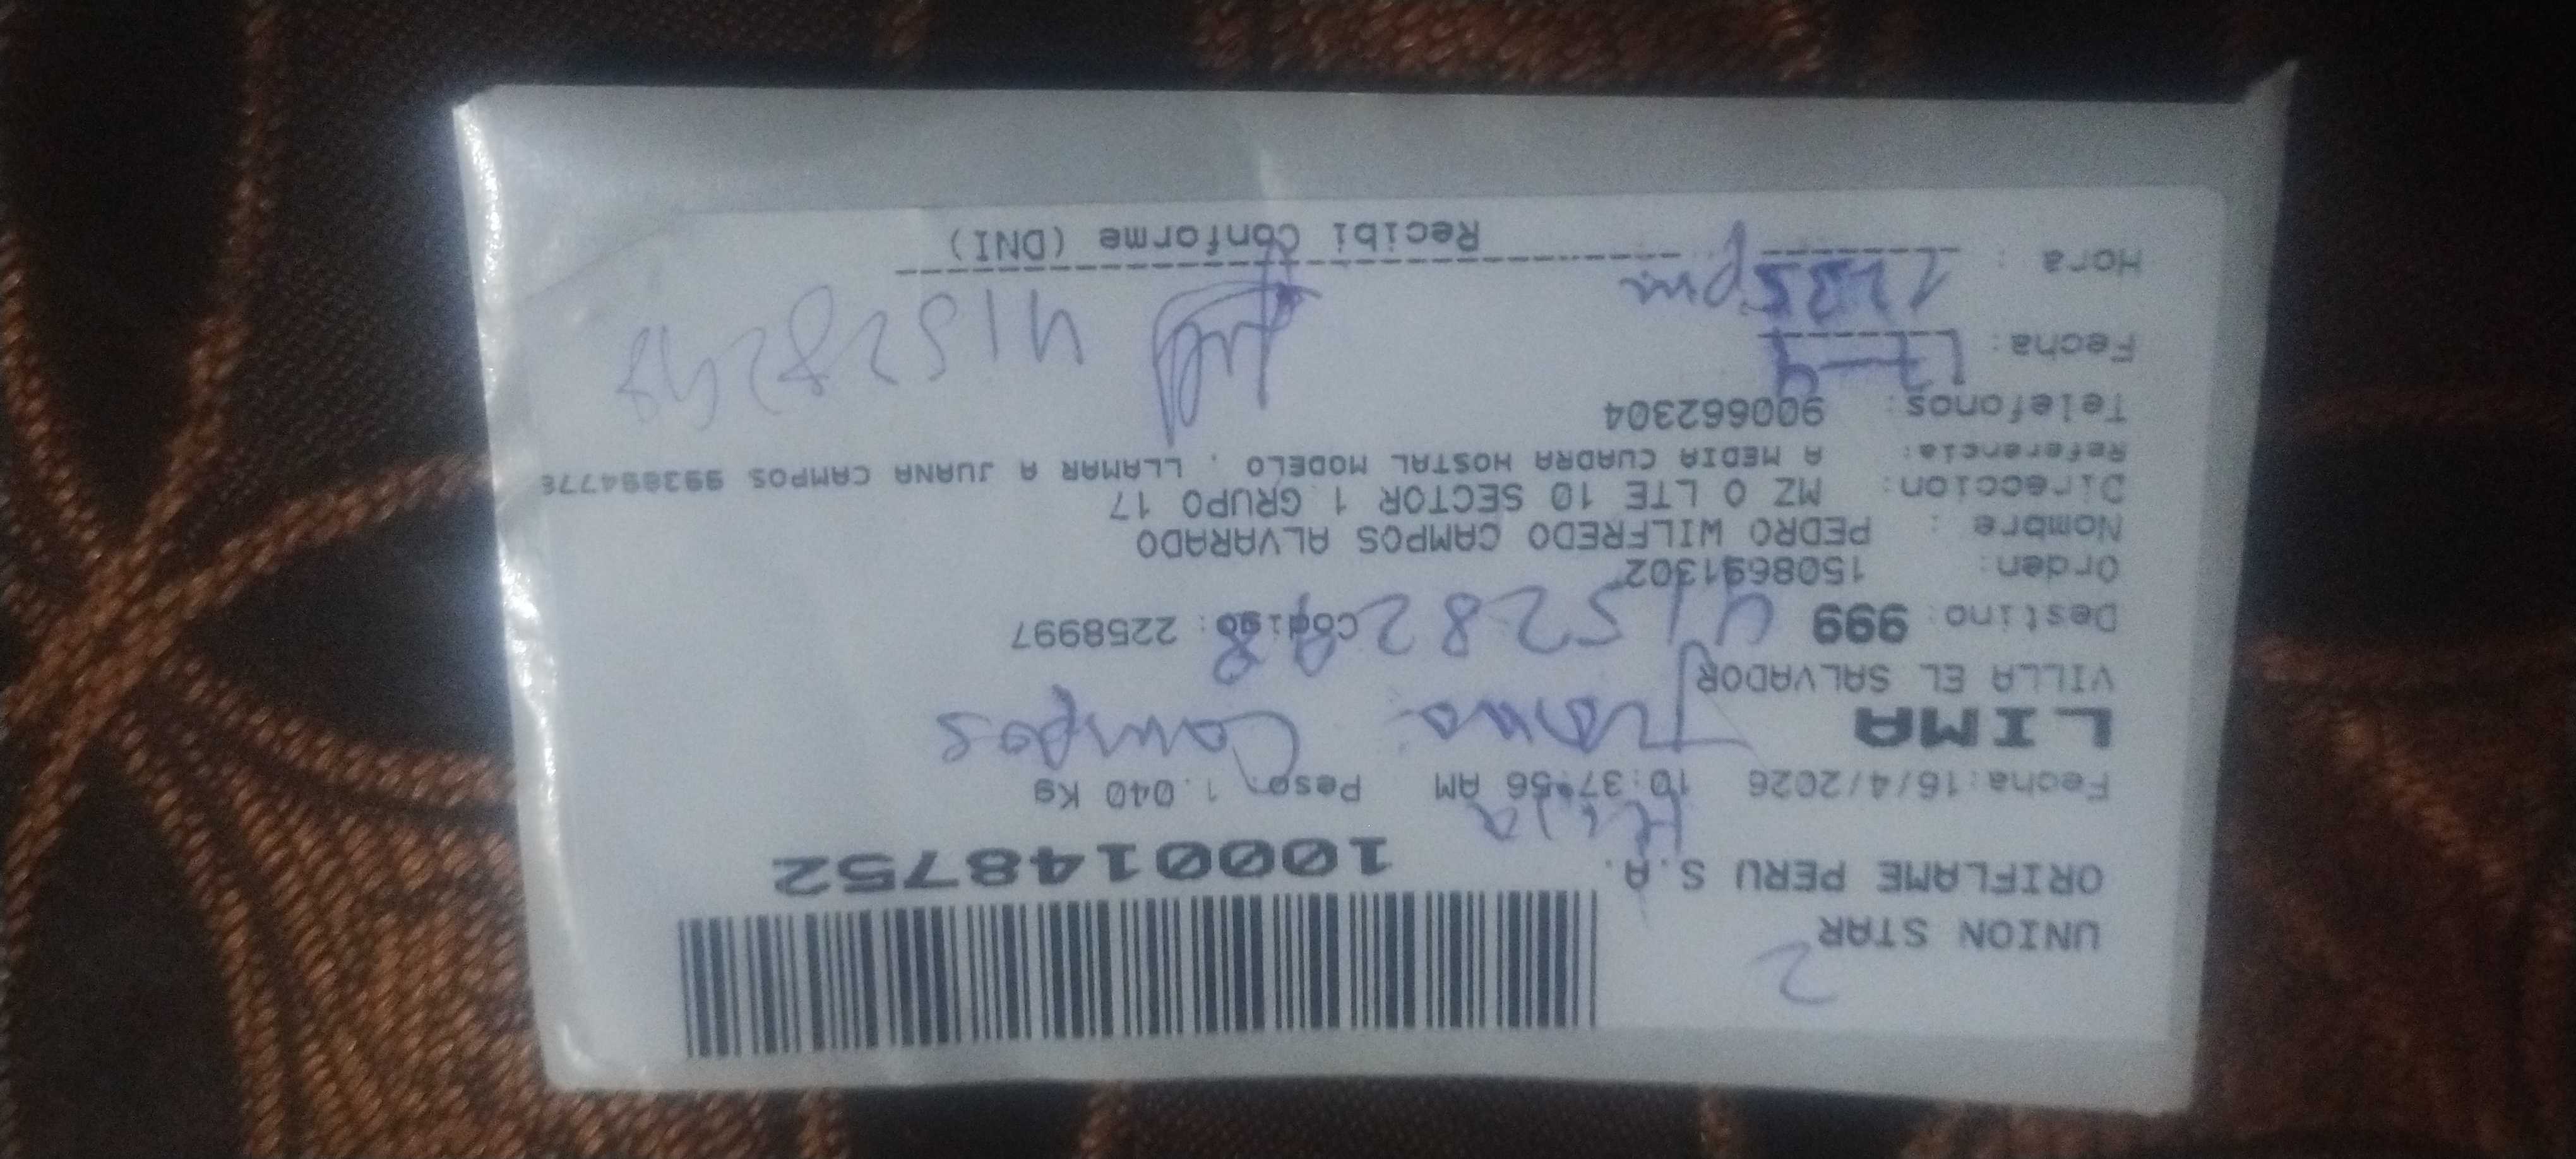 2
UNION STAR
ORIFLAME PERU S.A.
1000148752
Hija
Fecha: 16/4/2026 10:37:56 AM Peso: 1.040 Kg
LIMA
Juana Campos
VILLA EL SALVADOR
Destino: 999 Código: 2258997
Orden: 1508691302
Nombre : PEDRO WILFREDO CAMPOS ALVARADO
Direccion: MZ O LTE 10 SECTOR 1 GRUPO 17
Referencia: A MEDIA CUADRA HOSTAL MODELO . LLAMAR A JUANA CAMPOS
Telefonos: 900662304
Fecha: 17-4
Hora :
Recibi Conforme (DNI)